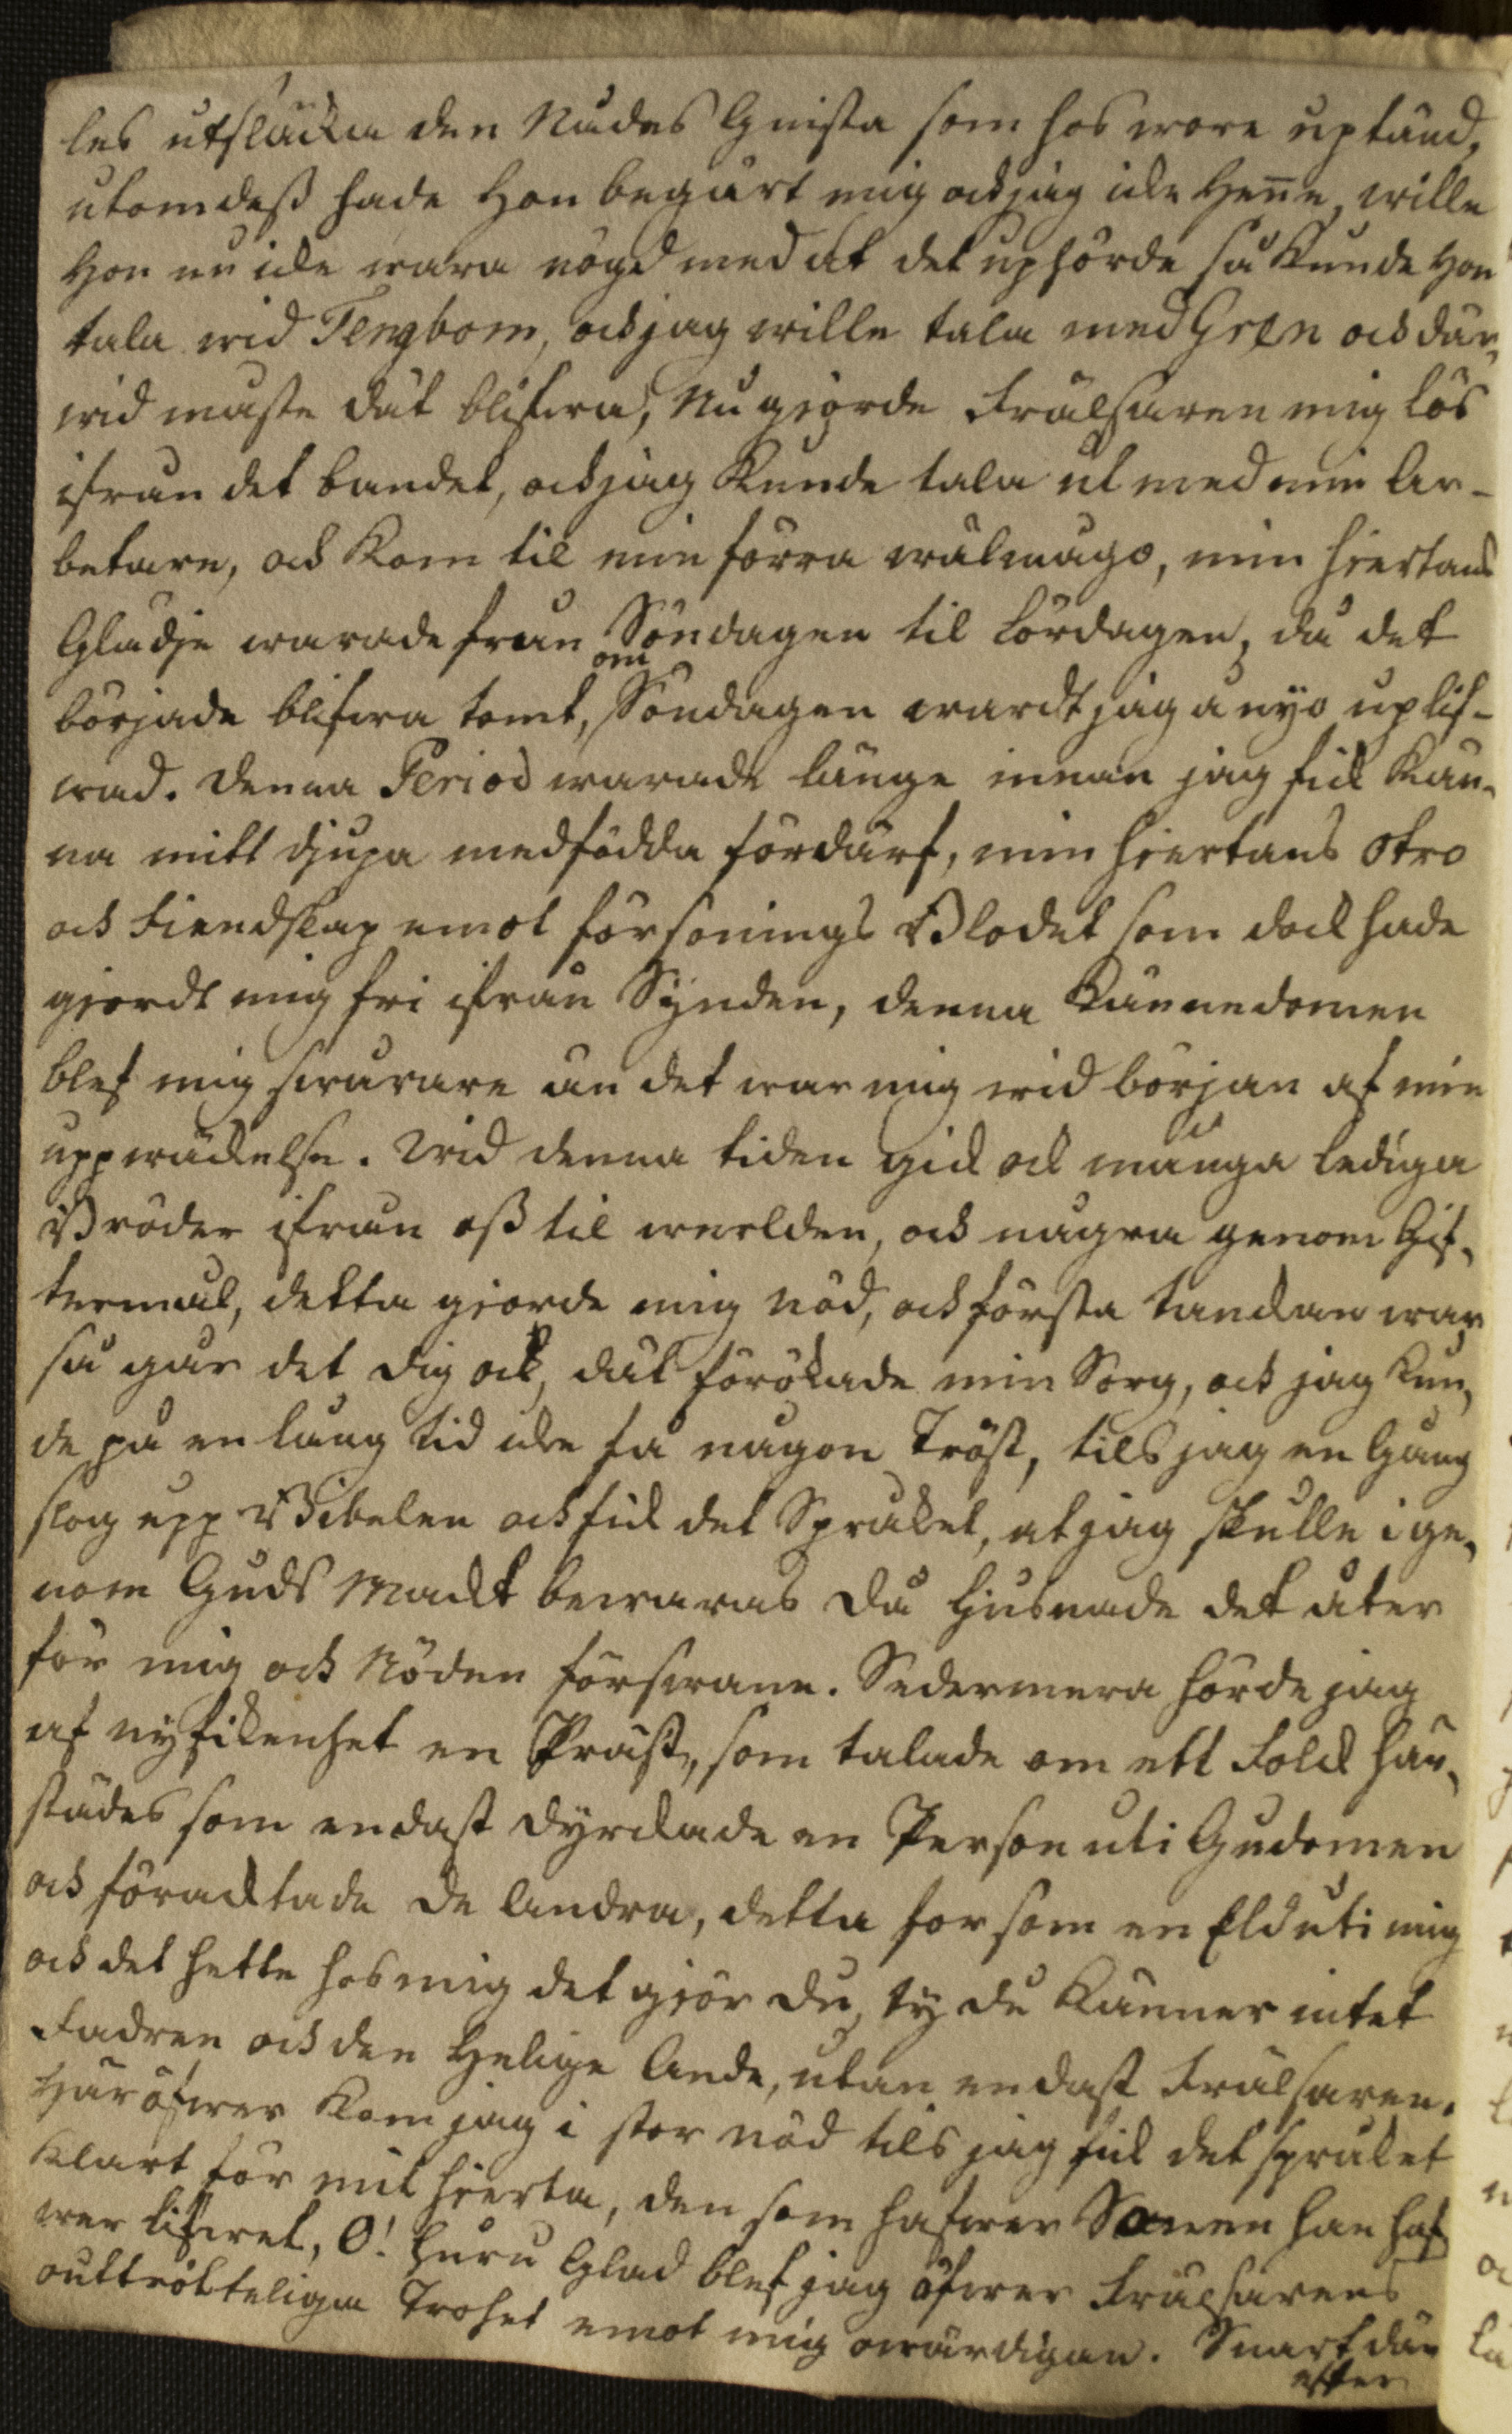 les utsläcka den Nådes Gnista som hos wore uptänd,
utomdeß hade Hon begärt mig och jag icke Hen̄e, wille
Hon nu icke wara nögd med at det uphörde så kunde Hon
tala wid Tengbom, och jag wille tala med Gren och där,
wid måste dät blifwa; Nu giorde Frälsaren mig lös
ifrån det bandet, och jag kunde tala ut med min Ar-
betare, och kom til min förra wälmågo, min hiertans
Glädje warade från Söndagen til Lördagen, då det
började blifwa tomt, om Söndagen wardt jag å nyo uplif-
wad. Denna Period warade länge innan jag fick kän-
na mitt djupa medfödda fördärf, min hiertans Otro
och Fiendskap emot försonings Blodet som dock hade
gjordt mig fri ifrån Synden, denna Kännedomen
blef mig swårare än det war mig wid början af min
uppwäckelse. Wid denna tiden gick ock många lediga
Bröder ifrån oß til werlden, och några genom Gif,
termål, detta giorde mig Nöd, och första tanckan war
så går det dig ock, dät förökade min Sorg, och jag kun,
de på en lång tid icke få någon Tröst, tils jag en Gång
slog upp Bibelen och fick det Språket, at jag skulle i ge,
nom Guds Mackt bewaras då ljusnade det åter
för mig och Nöden förswann. Sedermera hörde jag
af nyfikenhet en Präst, som talade om ett Folck här,
städes som endast dyrckade en Person uti Gudomen
och förachtade de Andra, detta for som en Eld uti mig
och det hette hos mig det giör du, ty du känner intet
Fadren och den Helige Ande, utan endast Frälsaren.
Häröfwer kom jag i stor nöd tils jag fick det språket
klart för mit hierta, den som hafwer Sonen han haf
wer Lifwet, O! huru Glad blef jag öfwer Frälsarens
outtrötteliga Trohet emot mig owärdigan. Snart där
efter